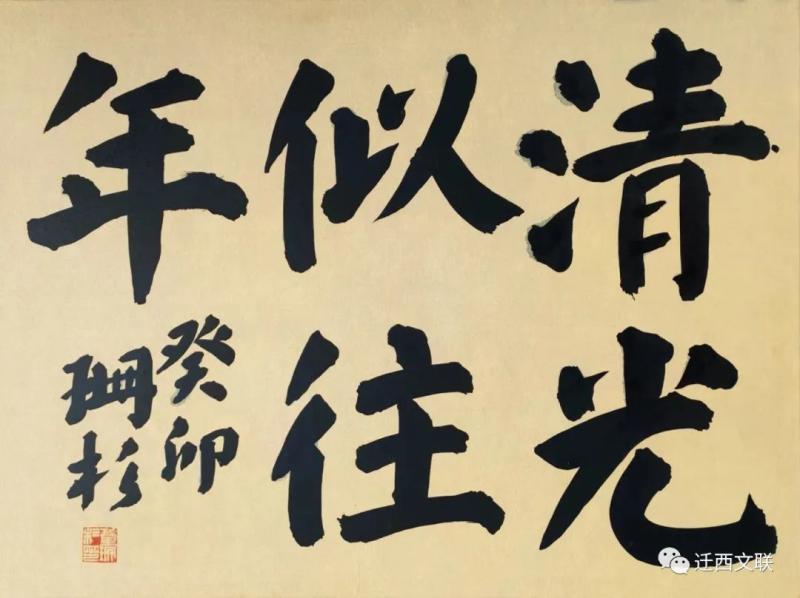 清光
似往
年
癸卯
珊杉
迁西文联